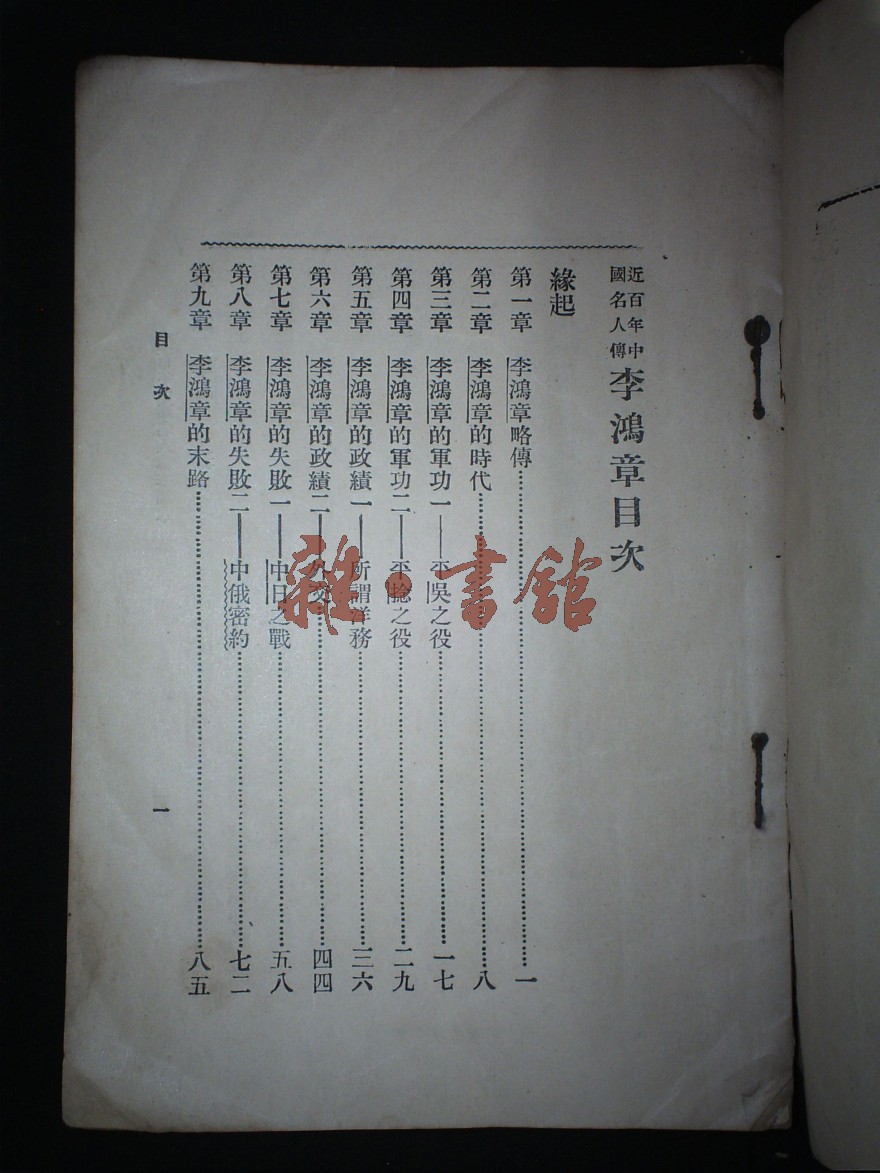 近百年中國名人傳 李鴻章目次
緣起
第一章 李鴻章略傳……一
第二章 李鴻章的時代……八
第三章 李鴻章的軍功一——平吳之役……一七
第四章 李鴻章的軍功二——平捻之役……二九
第五章 李鴻章的政績一——所謂洋務……三六
第六章 李鴻章的政績二——外交……四四
第七章 李鴻章的失敗一——中日之戰……五八
第八章 李鴻章的失敗二——中俄密約……七二
第九章 李鴻章的末路……八五
目次 一
雜·書館